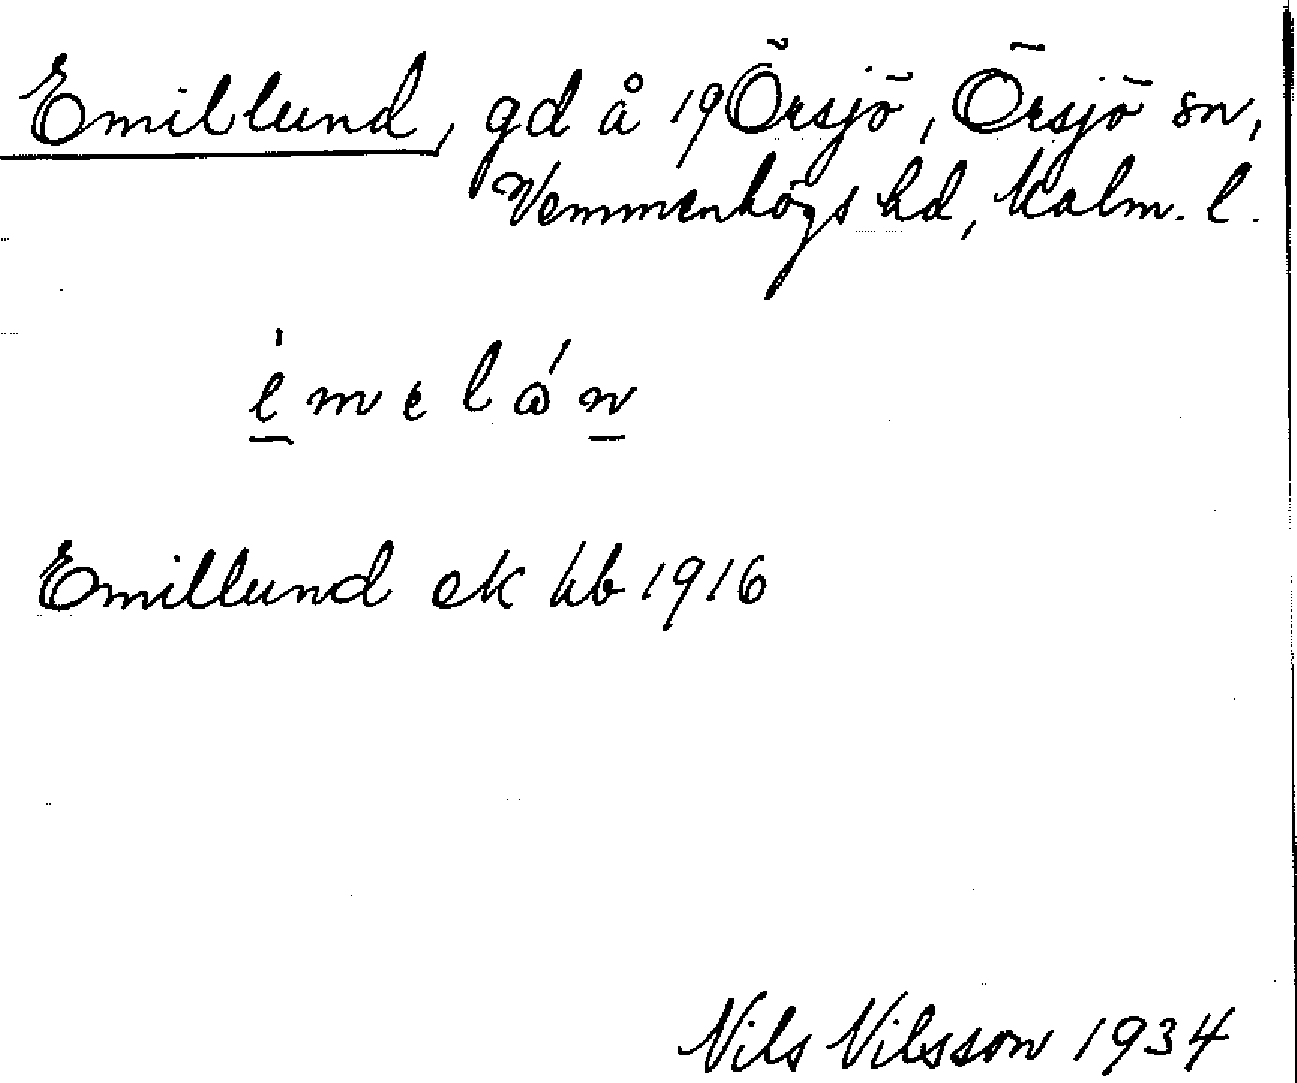 Emillund, gd å 19 Örsjö, Örsjö sn,
Vemmenhögs hd, Malm. l.
Emillund ek kb 1916
Nils Nilsson 1934